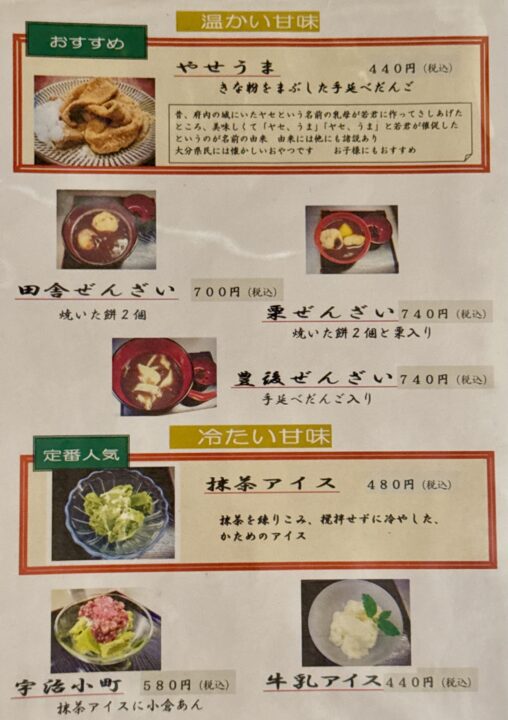 温かい甘味
おすすめ
やせうま 440円（税込）
きな粉をまぶした手延べだんご
昔、府内の城にいたヤセという名前の乳母が若君に作ってさしあげた
ところ、美味しくて「ヤセ、うま」「ヤセ、うま」と若君が催促した
というのが名前の由来　由来には他にも諸説あり
大分県民には懐かしいおやつです　お子様にもおすすめ
田舎ぜんざい 700円（税込）
焼いた餅２個
栗ぜんざい 740円（税込）
焼いた餅２個と栗入り
豊後ぜんざい 740円（税込）
手延べだんご入り
冷たい甘味
定番人気
抹茶アイス 480円（税込）
抹茶を練りこみ、撹拌せずに冷やした、
かためのアイス
宇治小町 580円（税込）
抹茶アイスに小倉あん
牛乳アイス 440円（税込）